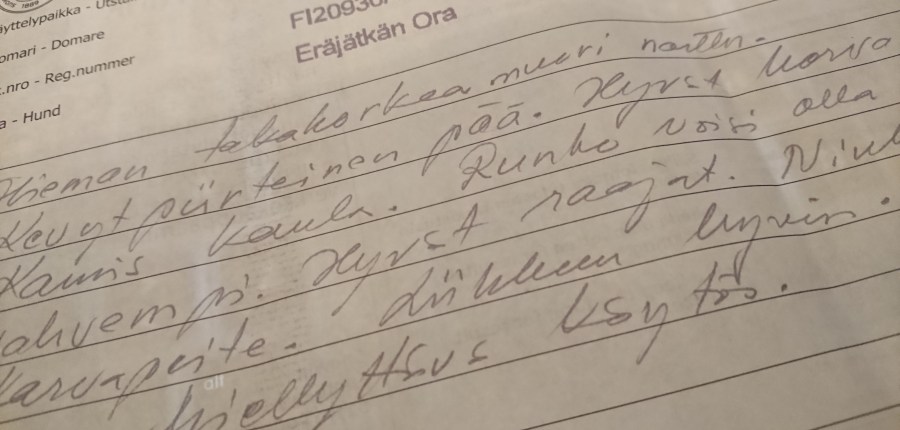 äyttelypaikka - Utst
omari - Domare
.nro - Reg.nummer
a - Hund
FI20930
Eräjätkän Ora
Hieman takakorkea nuori narttu.
Kevyt piirteinen pää. Hyvät korva
Kaunis kaula. Runko voisi olla
ahvempi. Hyvät raajat.
Karvapeite. Liikkuu hyvin.
Miellyttävä käytös.
all